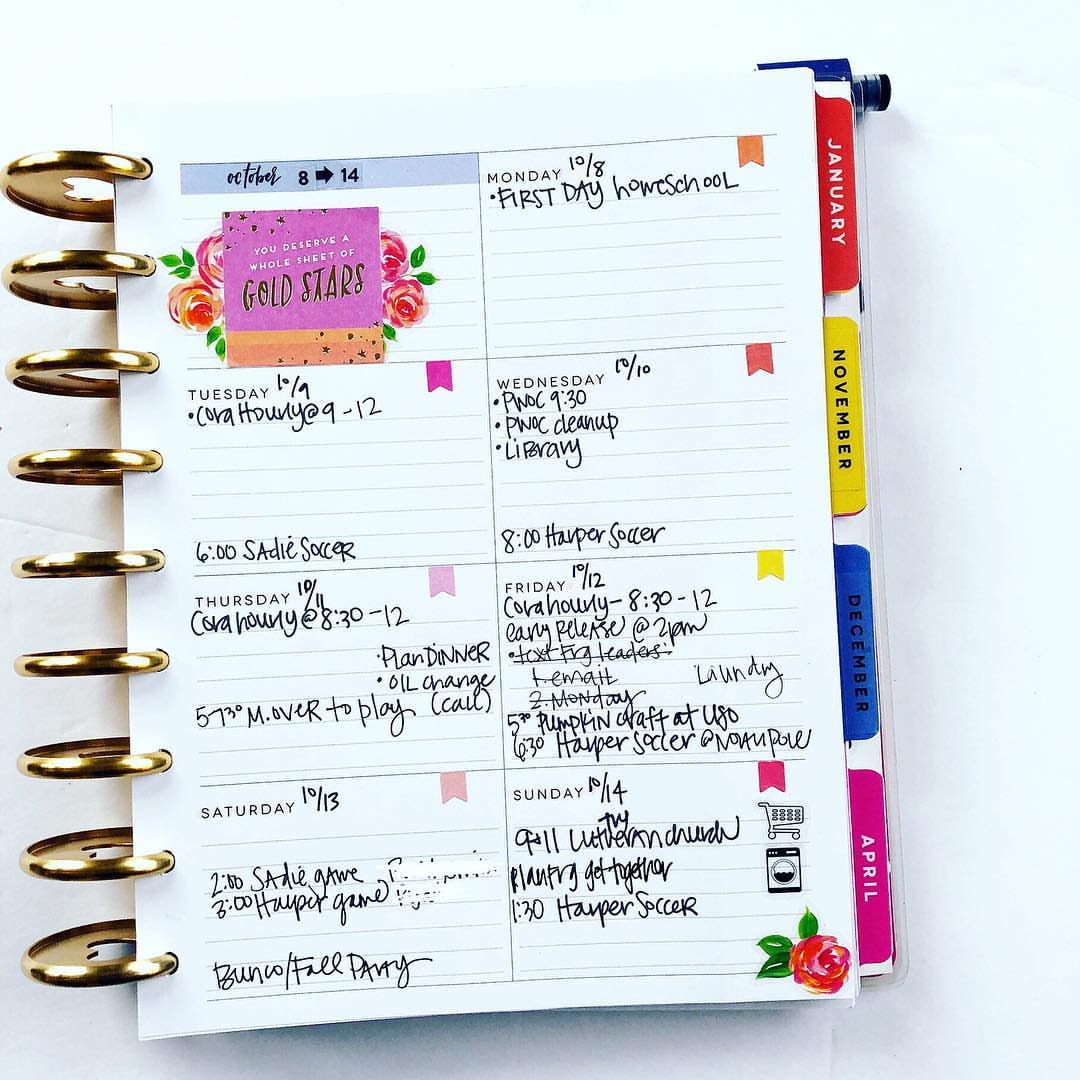 october 8 → 14
YOU DESERVE A
WHOLE SHEET OF
GOLD STARS
MONDAY 10/8
•FIRST DAY homeschool
TUESDAY 10/9
•Cora Hourly@9-12
6:00 Sadie Soccer
WEDNESDAY 10/10
•PWOC 9:30
•PWOC cleanup
•Library
8:00 Harper Soccer
THURSDAY 10/11
Cora hourly@8:30-12
•Plan DINNER
•Oil change
(call)
5-7:30 M. over to play
FRIDAY 10/12
Cora hourly-8:30-12
early release @ 2pm
•text frg leaders:
1. email
Laundry
2. Monday
5:30 Pumpkin craft at USO
6:30 Harper Soccer @
SATURDAY 10/13
2:00 Sadie game
3:00 Harper game
Bunco/Fall Party
SUNDAY 10/14
try
9+11 Lutheran church
plan frg get together
1:30 Harper Soccer
JANUARY
NOVEMBER
DECEMBER
APRIL